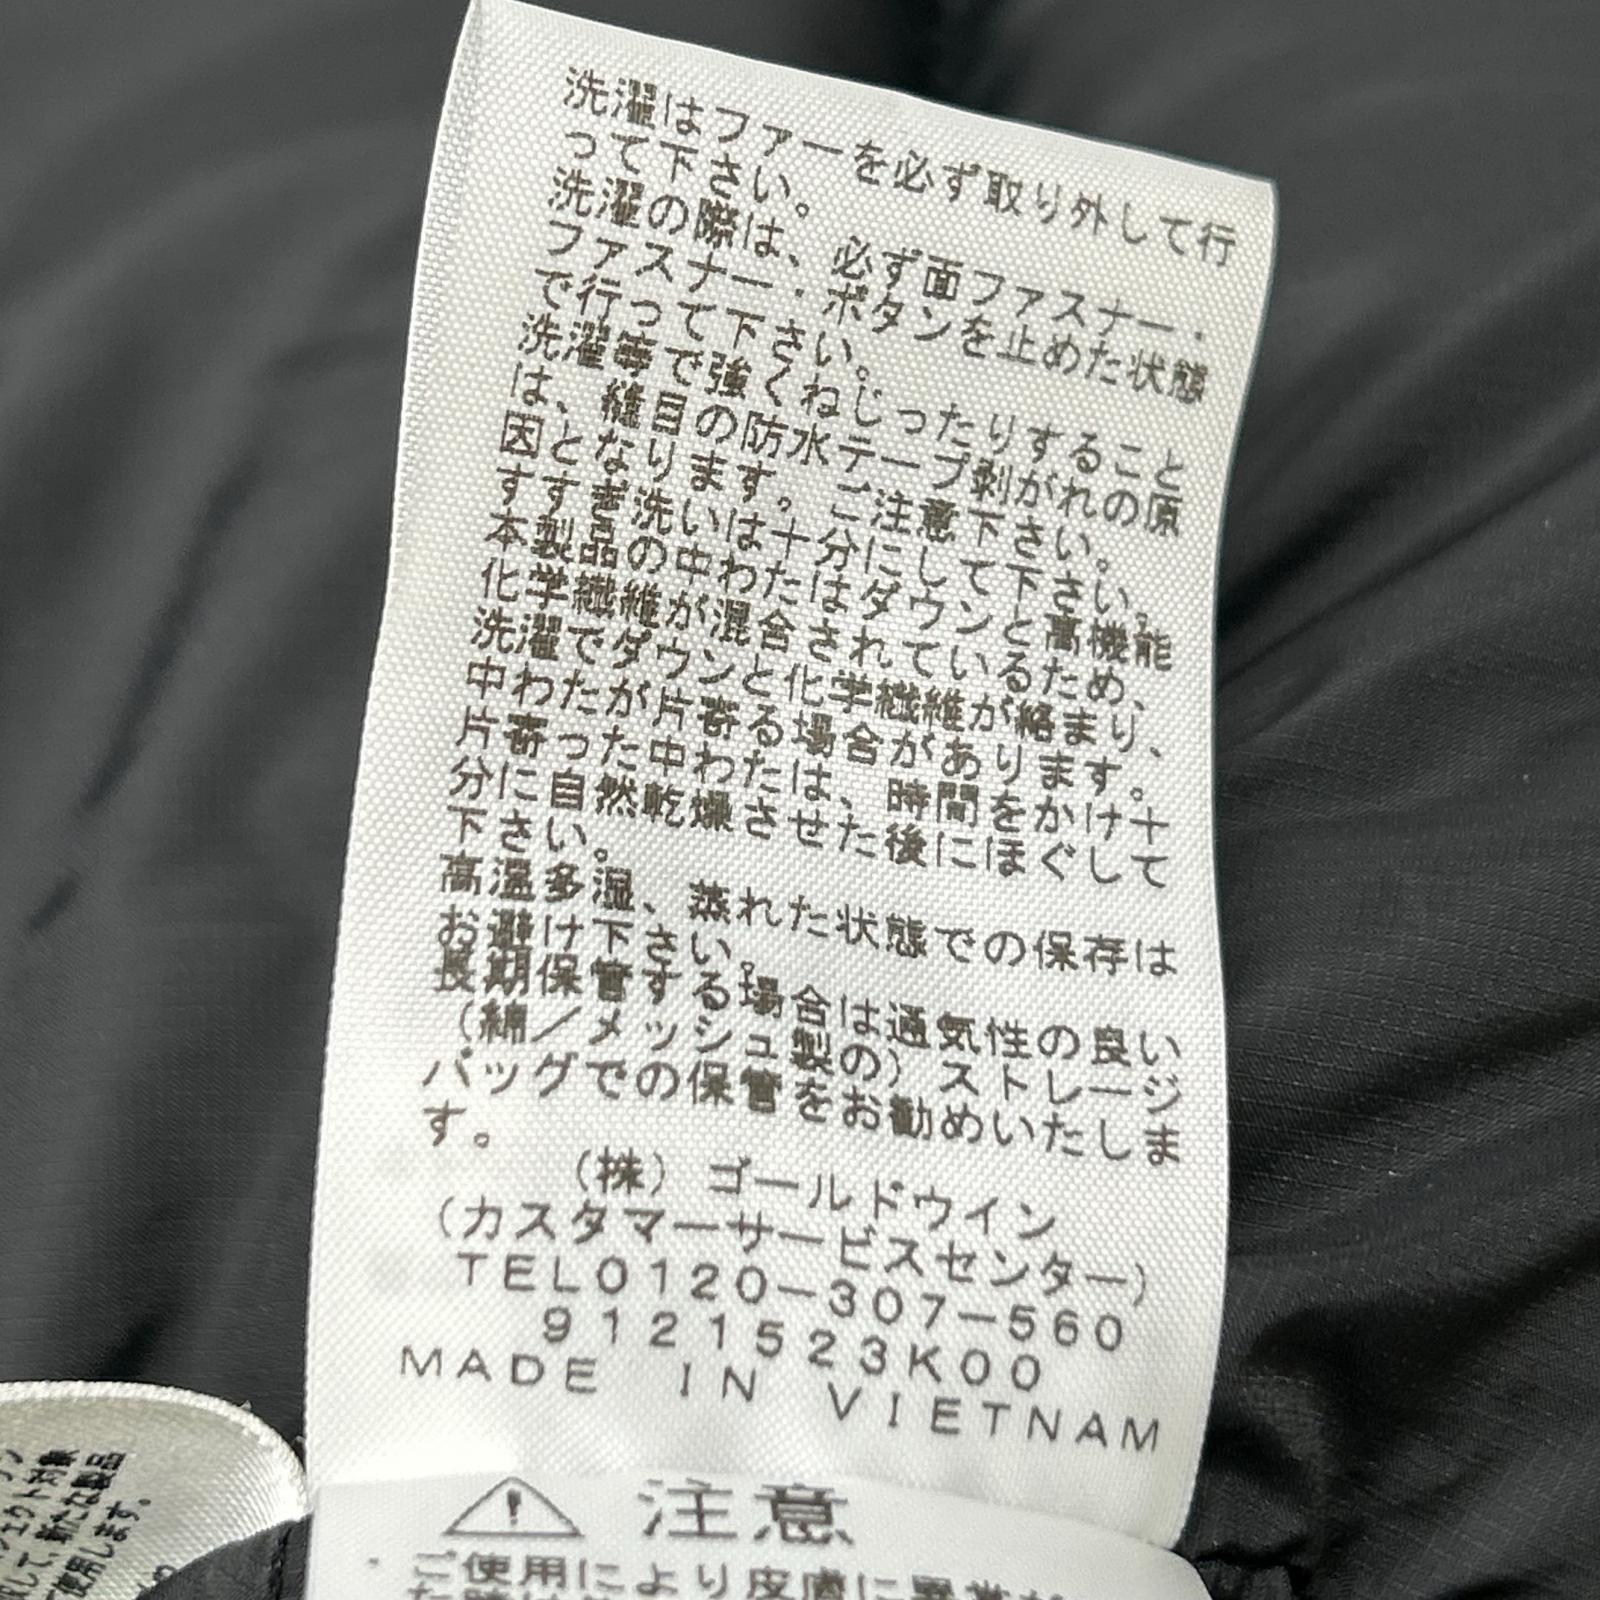 洗濯はファーを必ず取り外して行
って下さい。
洗濯の際は、必ず面ファスナー・
ファスナー・ボタンを止めた状態
で行って下さい。
洗濯等で強くねじったりすること
は、縫目の防水テープ剥がれの原
因となります。ご注意下さい。
すすぎ洗いは十分にして下さい。
本製品の中わたはダウンと高機能
化学繊維が混合されているため、
洗濯でダウンと化学繊維が絡まり、
中わたが片寄る場合があります。
片寄った中わたは、時間をかけて十
分に自然乾燥させた後にほぐして
下さい。
高温多湿、蒸れた状態での保存は
お避け下さい。
長期保管する場合は通気性の良い
(綿/メッシュ製の)ストレージ
バッグでの保管をお勧めいたしま
す。
(株)ゴールドウイン
(カスタマーサービスセンター)
TEL0120-307-560
9121523K00
MADE IN VIETNAM
注意
・ご使用により皮膚に異常が
ト対象
して、新たな製品
使用します。